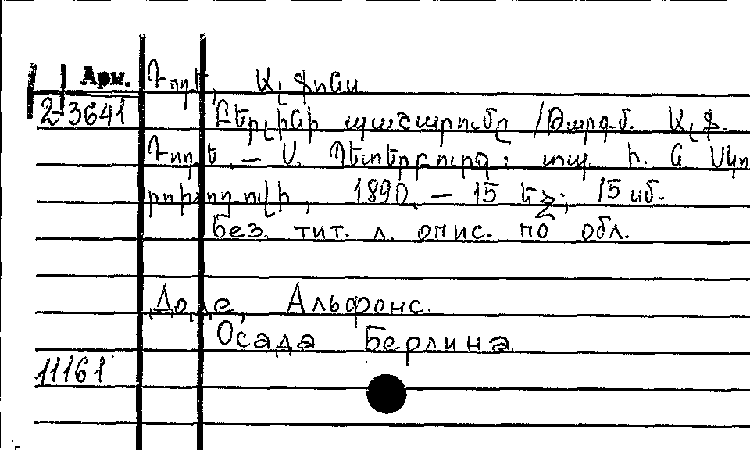 Арм. Դոդե, Ալֆոնս
2-3641 Բերլինի պաշարումը /Թարգմ. Ալֆ.
Դոդե. — Ս. Պետերբուրգ: տպ. Ի. Ն. Սկո
րոխոդովի, 1890. — 15 եջ; 15 սб.
Без тит. л. опис. по обл.
Доде, Альфонс.
Осада Берлина
11161